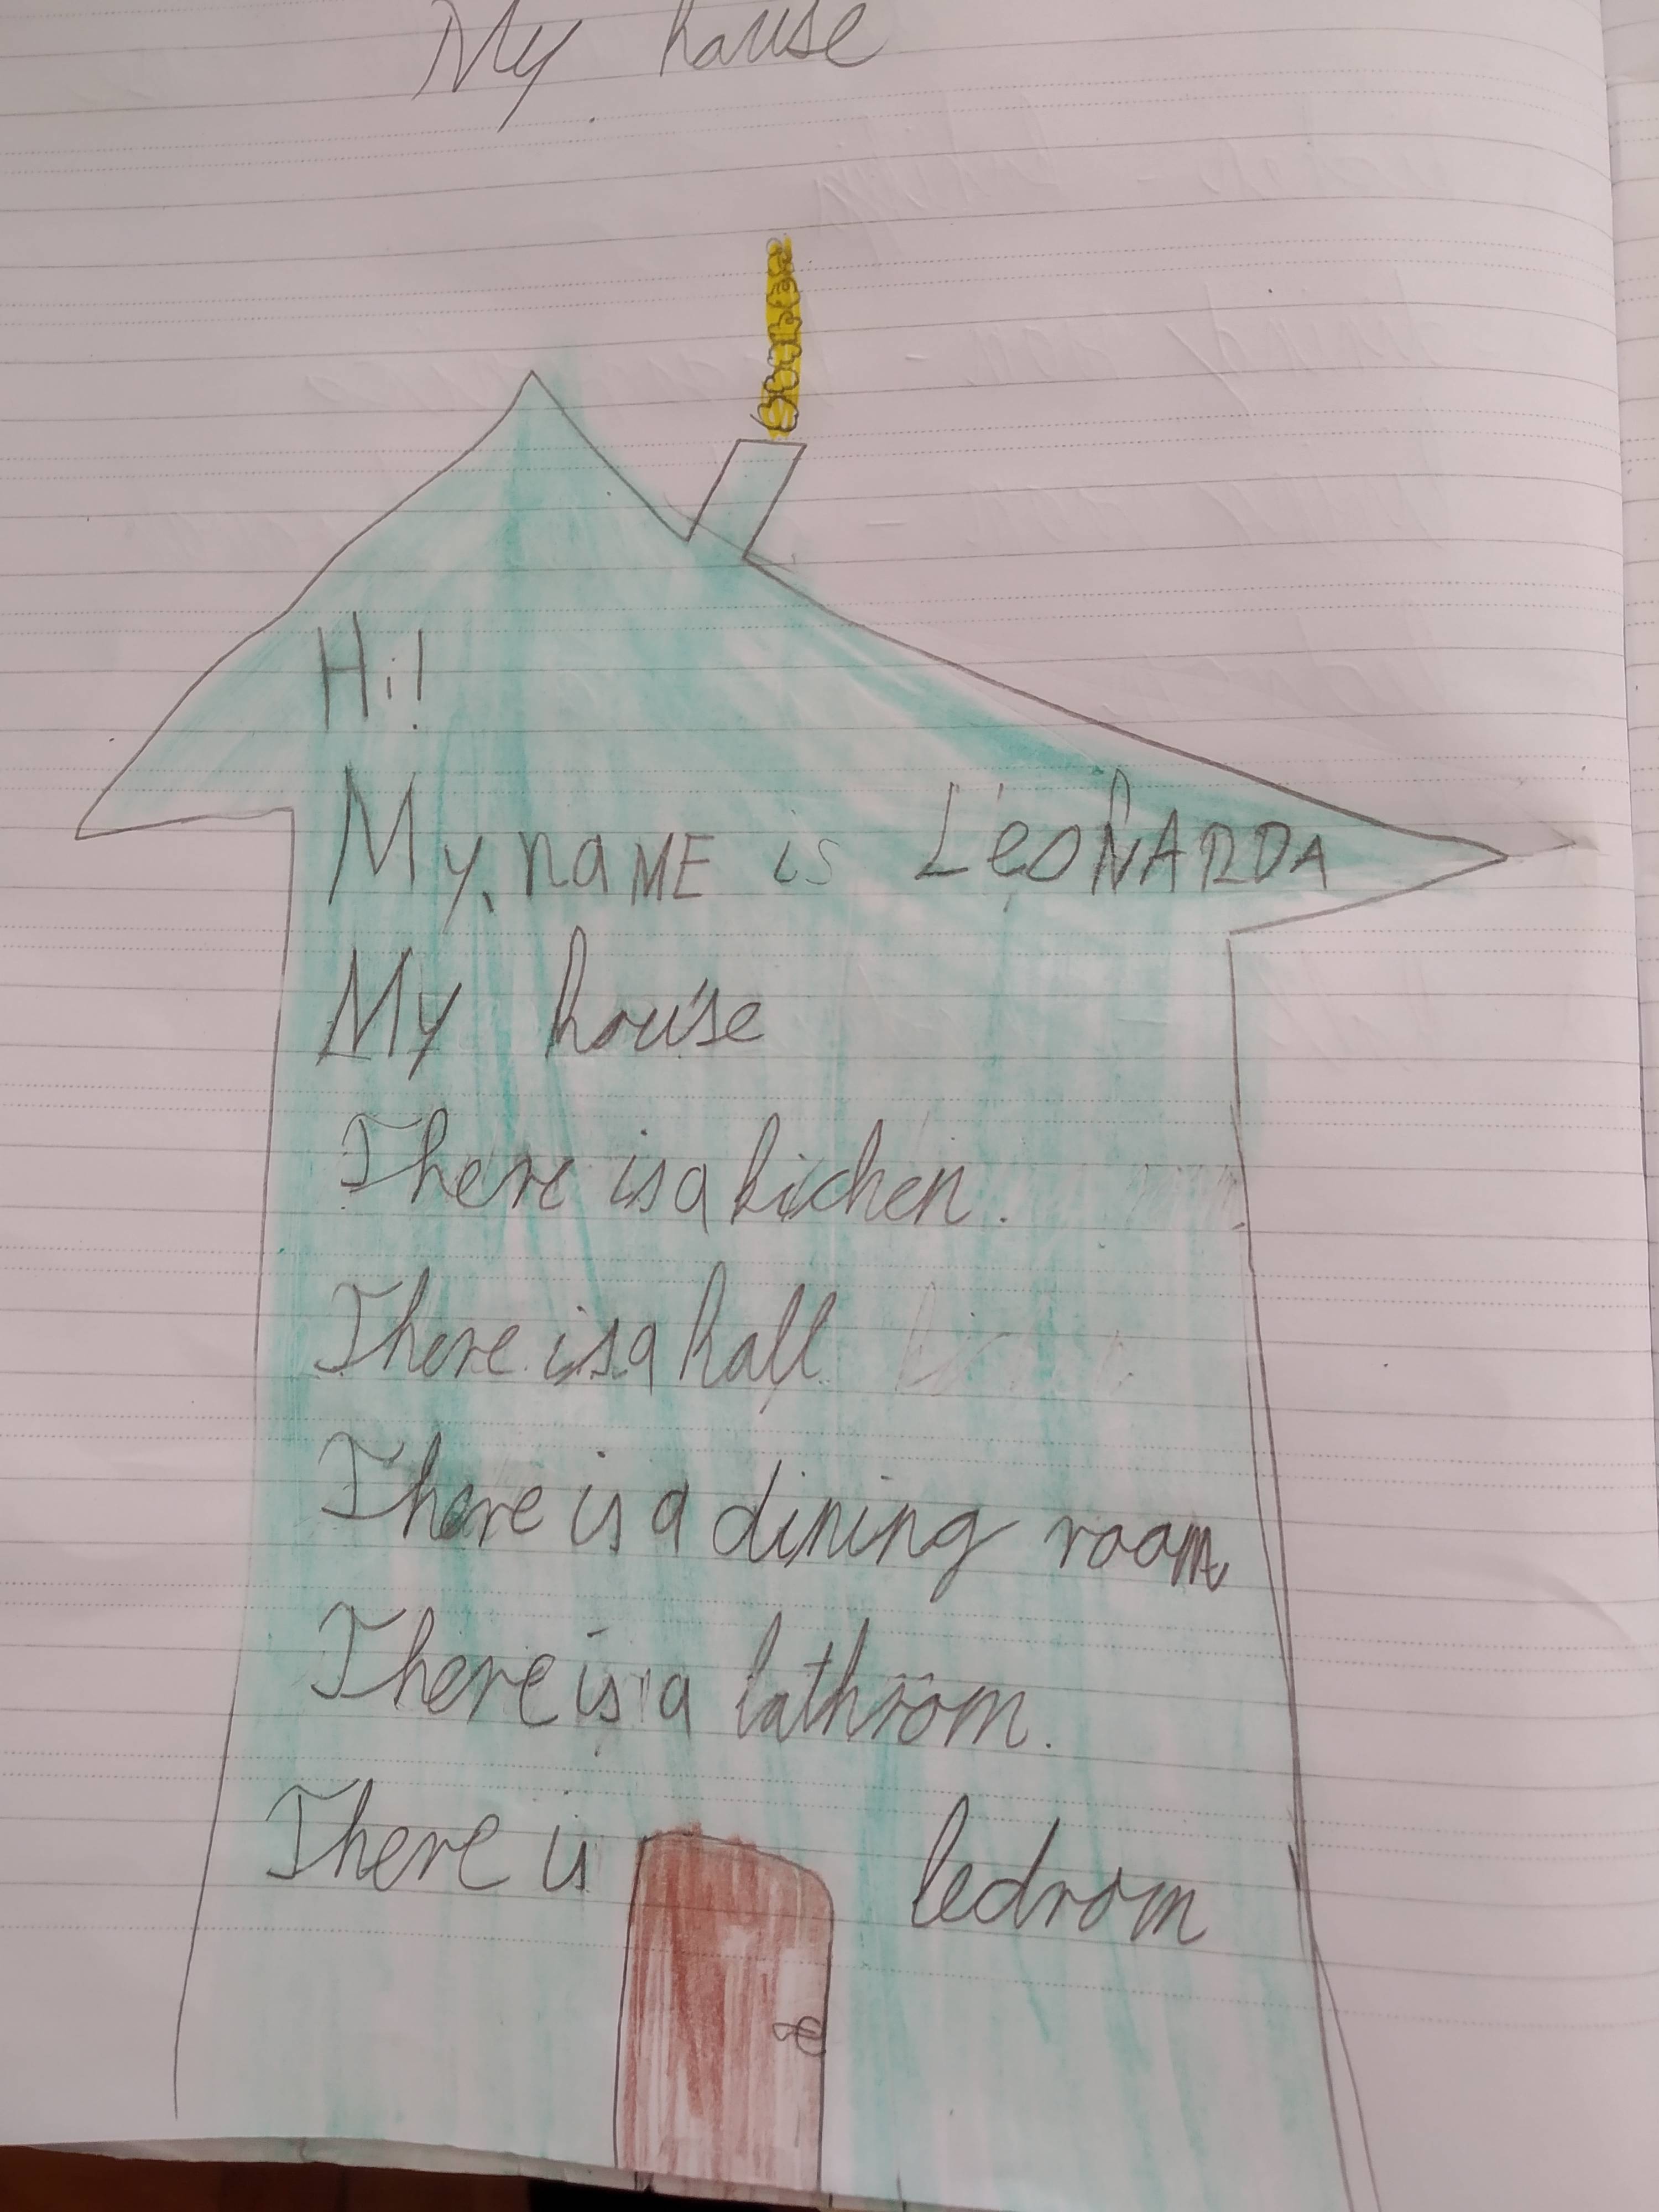 My house
Hi!
My name is LEONARDA
My house
There is a kichen.
There is a hall
There is a dining room
There is a bathrom.
There is bedrom